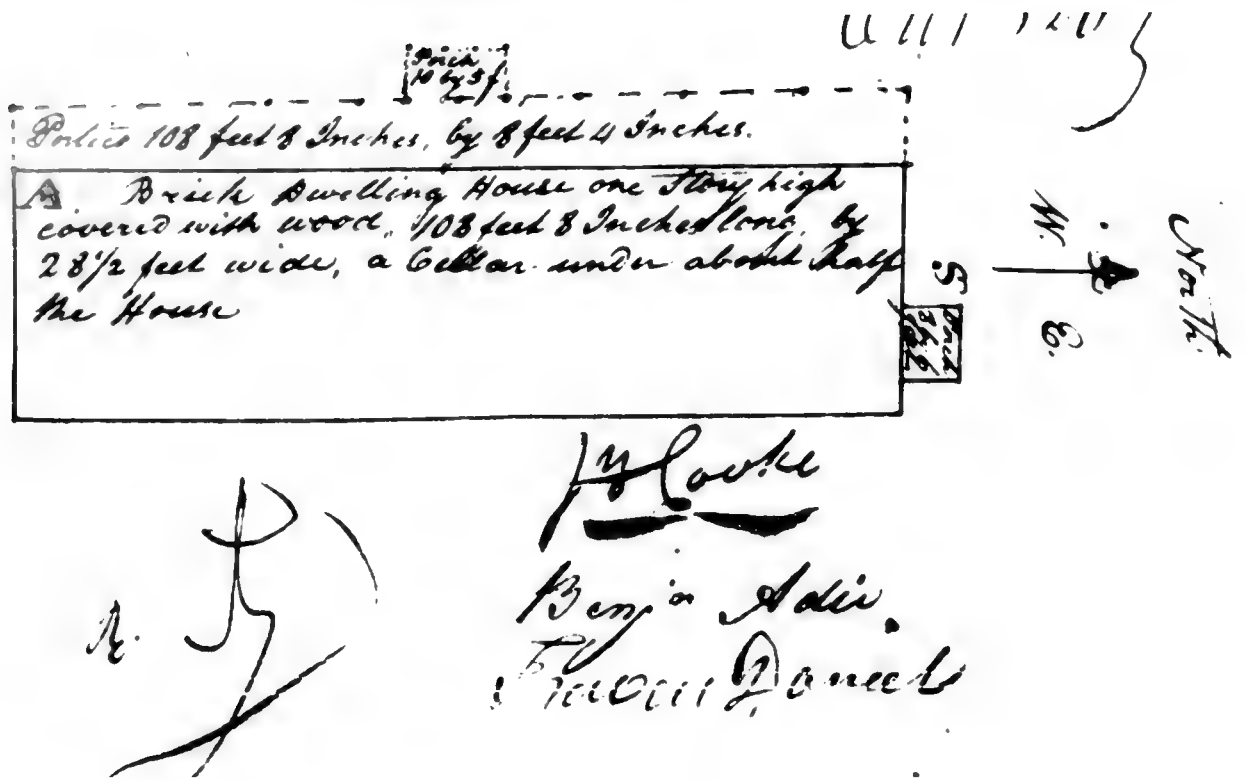 Porch
10 by 5 f
Portico 108 feet 8 Inches, by 8 feet 4 Inches.
A Brick Dwelling House one Story high
covered with wood, 108 feet 8 Inches long, by
28 1/2 feet wide, a Cellar under about half
the House
Porch
North.
W.
E.
S
Cooke
Benja
Daniel